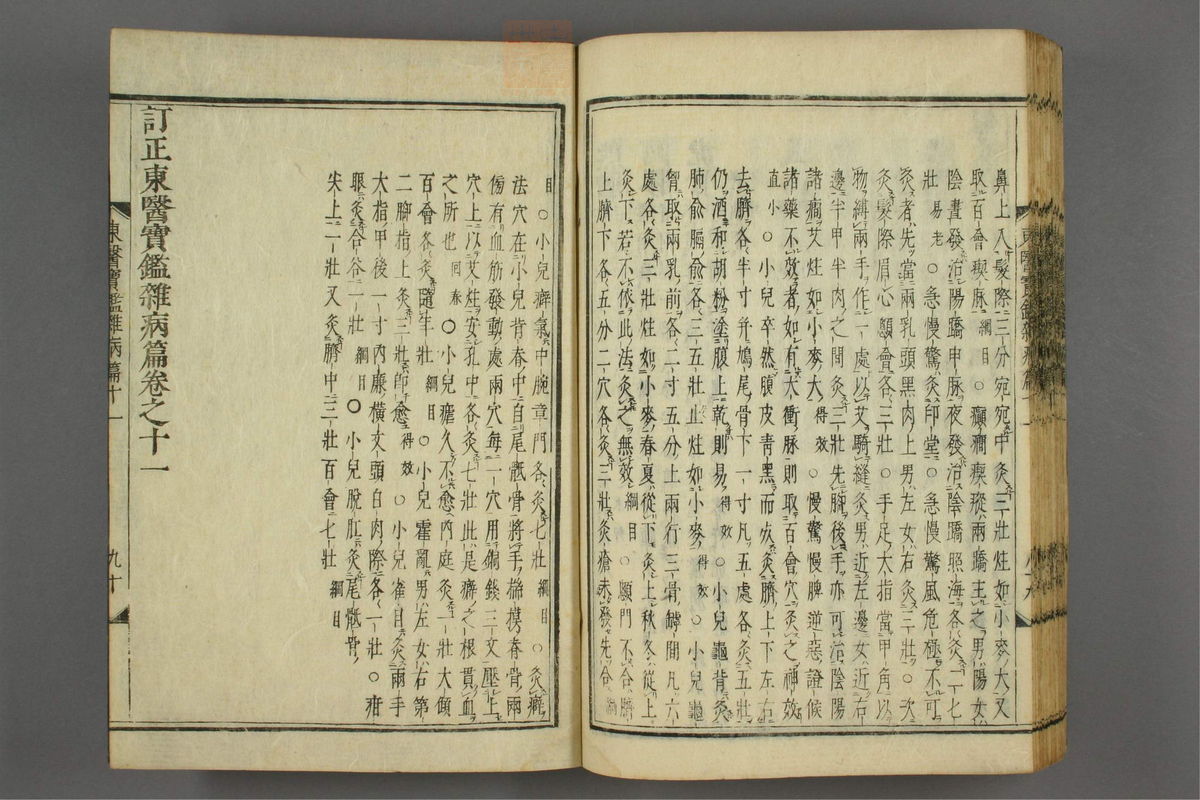 鼻上入髮際三分宛宛中灸三壯炷如小麥大又
取百會瘈脉 綱目 ○癲癇瘈瘲兩蹻主之男陽女
陰晝發治陽蹻申脉夜發治陰蹻照海各灸二七
壯 易老 ○急慢驚灸印堂○急慢驚風危極不可
灸者先當兩乳頭黑肉上男左女右灸三壯○次
灸髮際眉心顖會各三壯○手足大指當甲角以
物縛兩手作一處以艾騎縫灸男近左邊女近右
邊半甲半肉之間灸三壯先脚後手亦可治陰陽
諸癎艾炷如小麥大 得效 ○慢驚慢脾逆惡證候
諸藥不效者如有大衝脉則取百會穴灸之神效
直小 ○小兒卒然腹皮靑黑而灸臍上下左右
去臍各半寸幷鳩尾骨下一寸凡五處各灸五壯
仍酒和胡粉塗腹上乾則易 得效 ○小兒龜背灸
肺兪膈兪各三五壯止炷如小麥 得效 ○小兒龜
胷取兩乳前各二寸五分上兩行三骨罅間凡六
處各灸三壯炷如小麥春夏從下灸上秋冬從上
灸下若不依此法灸之無效 綱目 ○顖門不合臍
上臍下各五分二穴各灸三壯灸瘡未發先合 綱
目 ○小兒癖氣中脘章門各灸七壯 綱目 ○灸癖
法穴在小兒背脊中自尾骶骨將手揣摸脊骨兩
傍有血筋發動處兩穴每一穴用銅錢三文壓上
穴上以艾炷安孔中各灸七壯此是癖之根貫血
之所也 囘春 ○小兒瘧久不愈內庭灸一壯大傾
百會各灸隨年壯 綱目 ○小兒霍亂男左女右第
二脚指上灸三壯卽愈 得效 ○小兒雀目灸兩手
大指甲後一寸內廉橫文頭白肉際各一壯○疳
眼灸合谷二壯 綱目 ○小兒脫肛灸尾骶骨
尖上一壯又灸臍中三壯百會七壯 綱目
訂正東醫寶鑑雜病篇卷之十一
東醫寶鑑雜病篇十一
九十